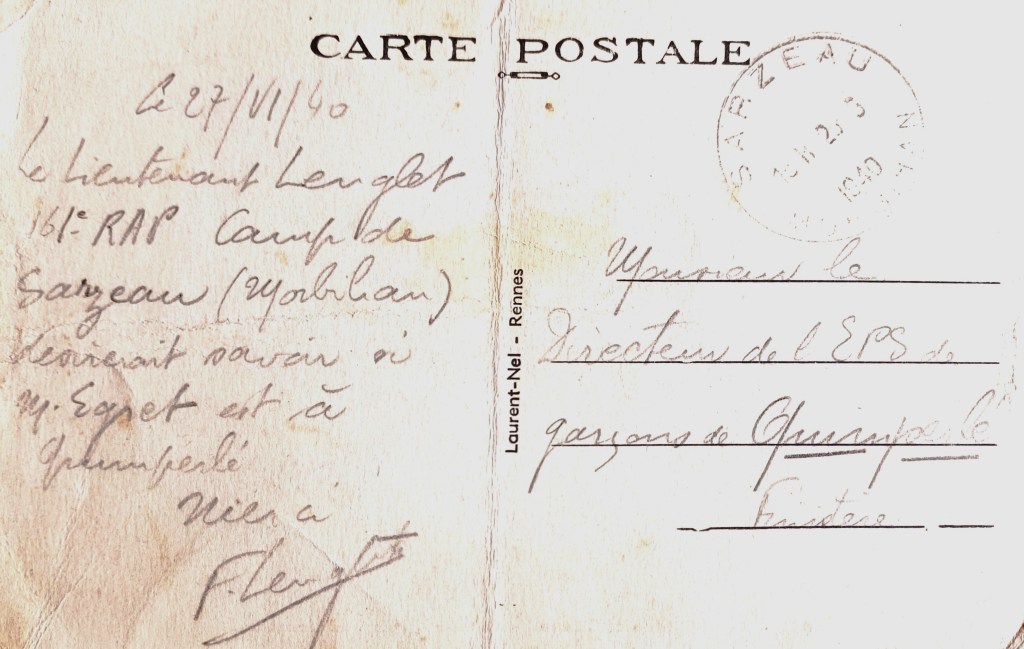 CARTE POSTALE
Le 27/VI/40
Le Lieutenant Lenglet
161e RAP Camp de
Sarzeau (Morbihan)
desirerait savoir si
M. Egret est à
Quimperlé
F. Lenglet
Laurent-Nel - Rennes
SARZEAU
1940
MORBIHAN
Monsieur le
Directeur de l'EPS de
garçons de Quimperlé
Finistère